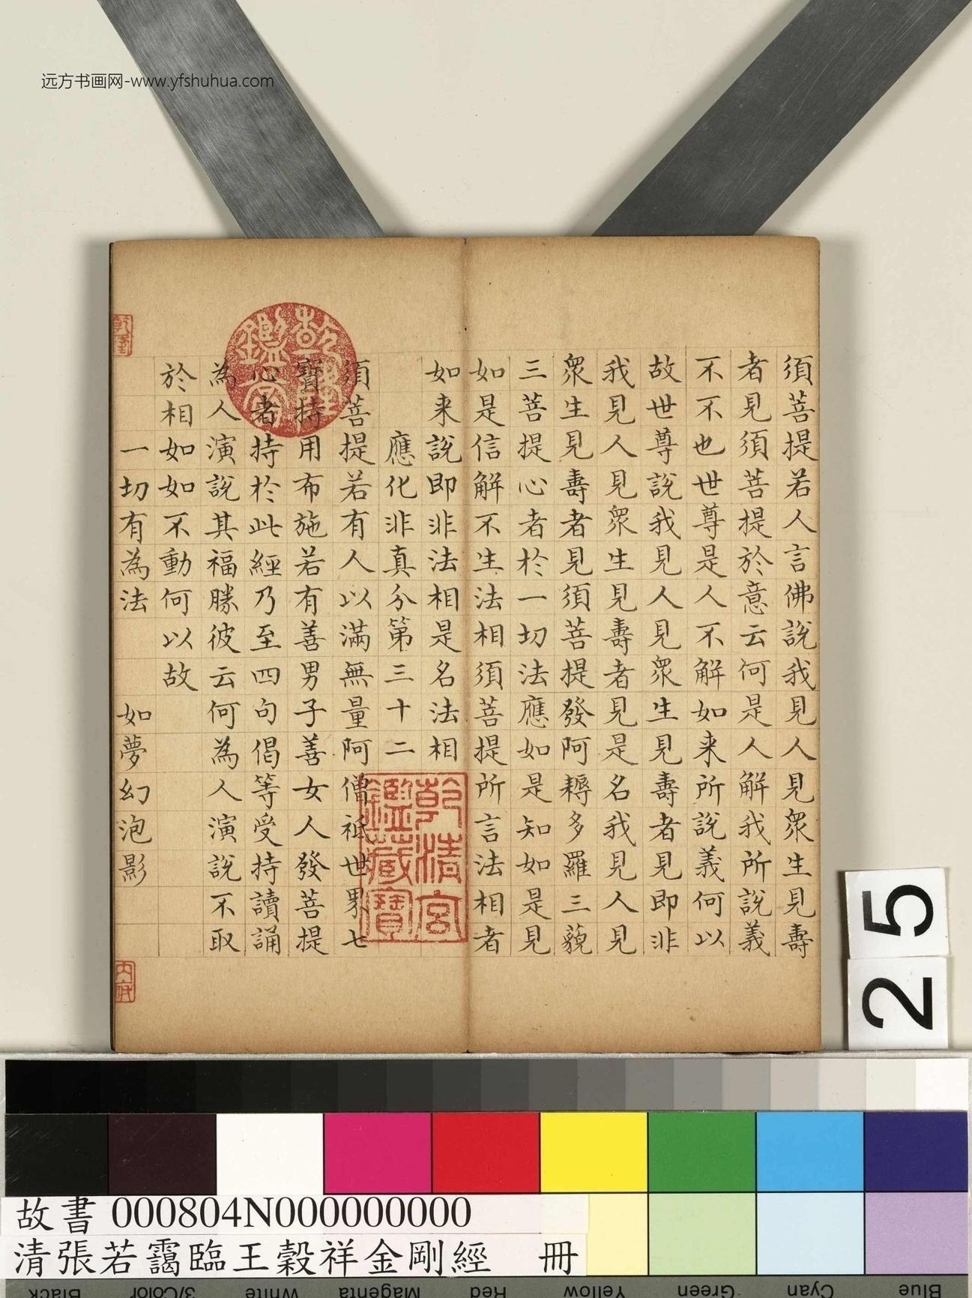 远方书画网-www.yfshuhua.com
須菩提若人言佛說我見人見衆生見壽
者見須菩提於意云何是人解我所說義
不不也世尊是人不解如来所說義何以
故世尊說我見人見衆生見壽者見即非
我見人見衆生見壽者見是名我見人見
衆生見壽者見須菩提發阿耨多羅三藐
三菩提心者於一切法應如是知如是見
如是信解不生法相須菩提所言法相者
如来說即非法相是名法相
應化非真分第三十二
須菩提若有人以滿無量阿僧祗世界七
寶持用布施若有善男子善女人發菩提
心者持於此經乃至四句偈等受持讀誦
為人演說其福勝彼云何為人演說不取
於相如如不動何以故
一切有為法 如夢幻泡影
乾隆鑑賞
乾清宮鑑藏寶
乾隆
内府
25
故書 000804N000000000
清張若靄臨王穀祥金剛經 冊
Black 3/Color White Magenta Red Yellow Green Cyan Blue